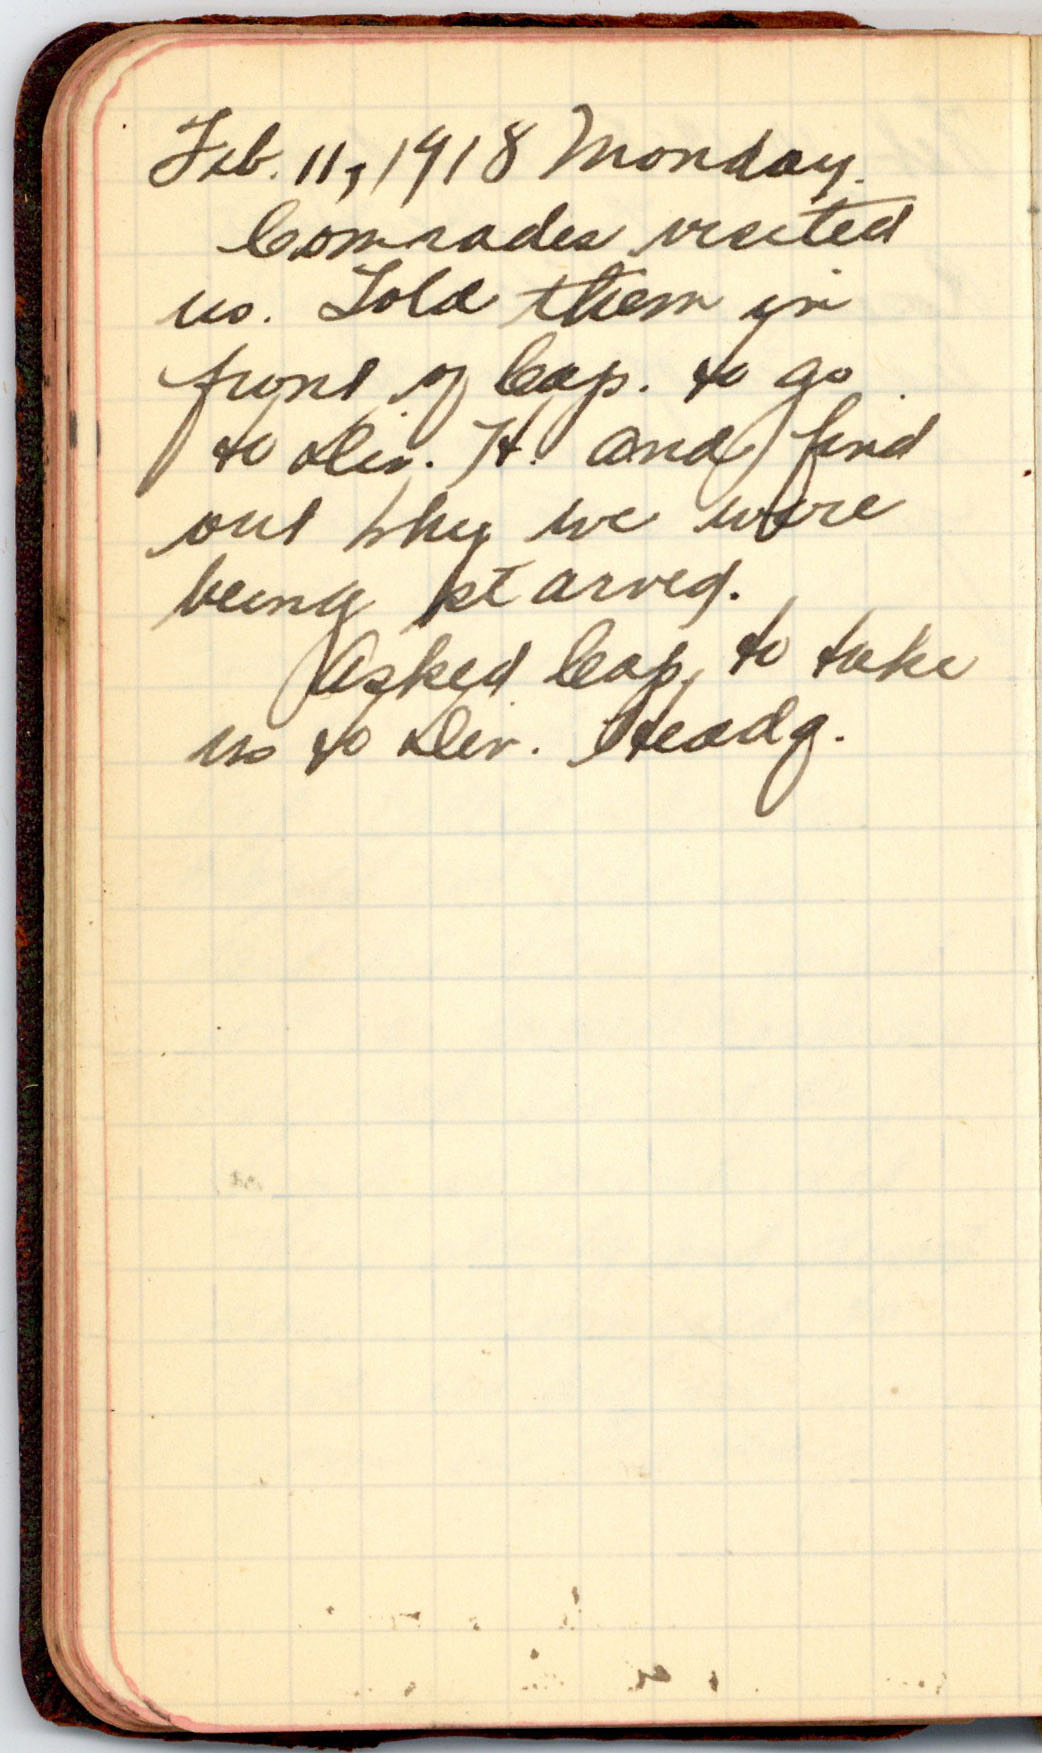 Feb. 11, 1918 Monday.
Comrades visited
us. Told them in
front of Cap. to go
to Div. H. and find
out why we were
being starved.
Asked Cap. to take
us to Div. Headq.